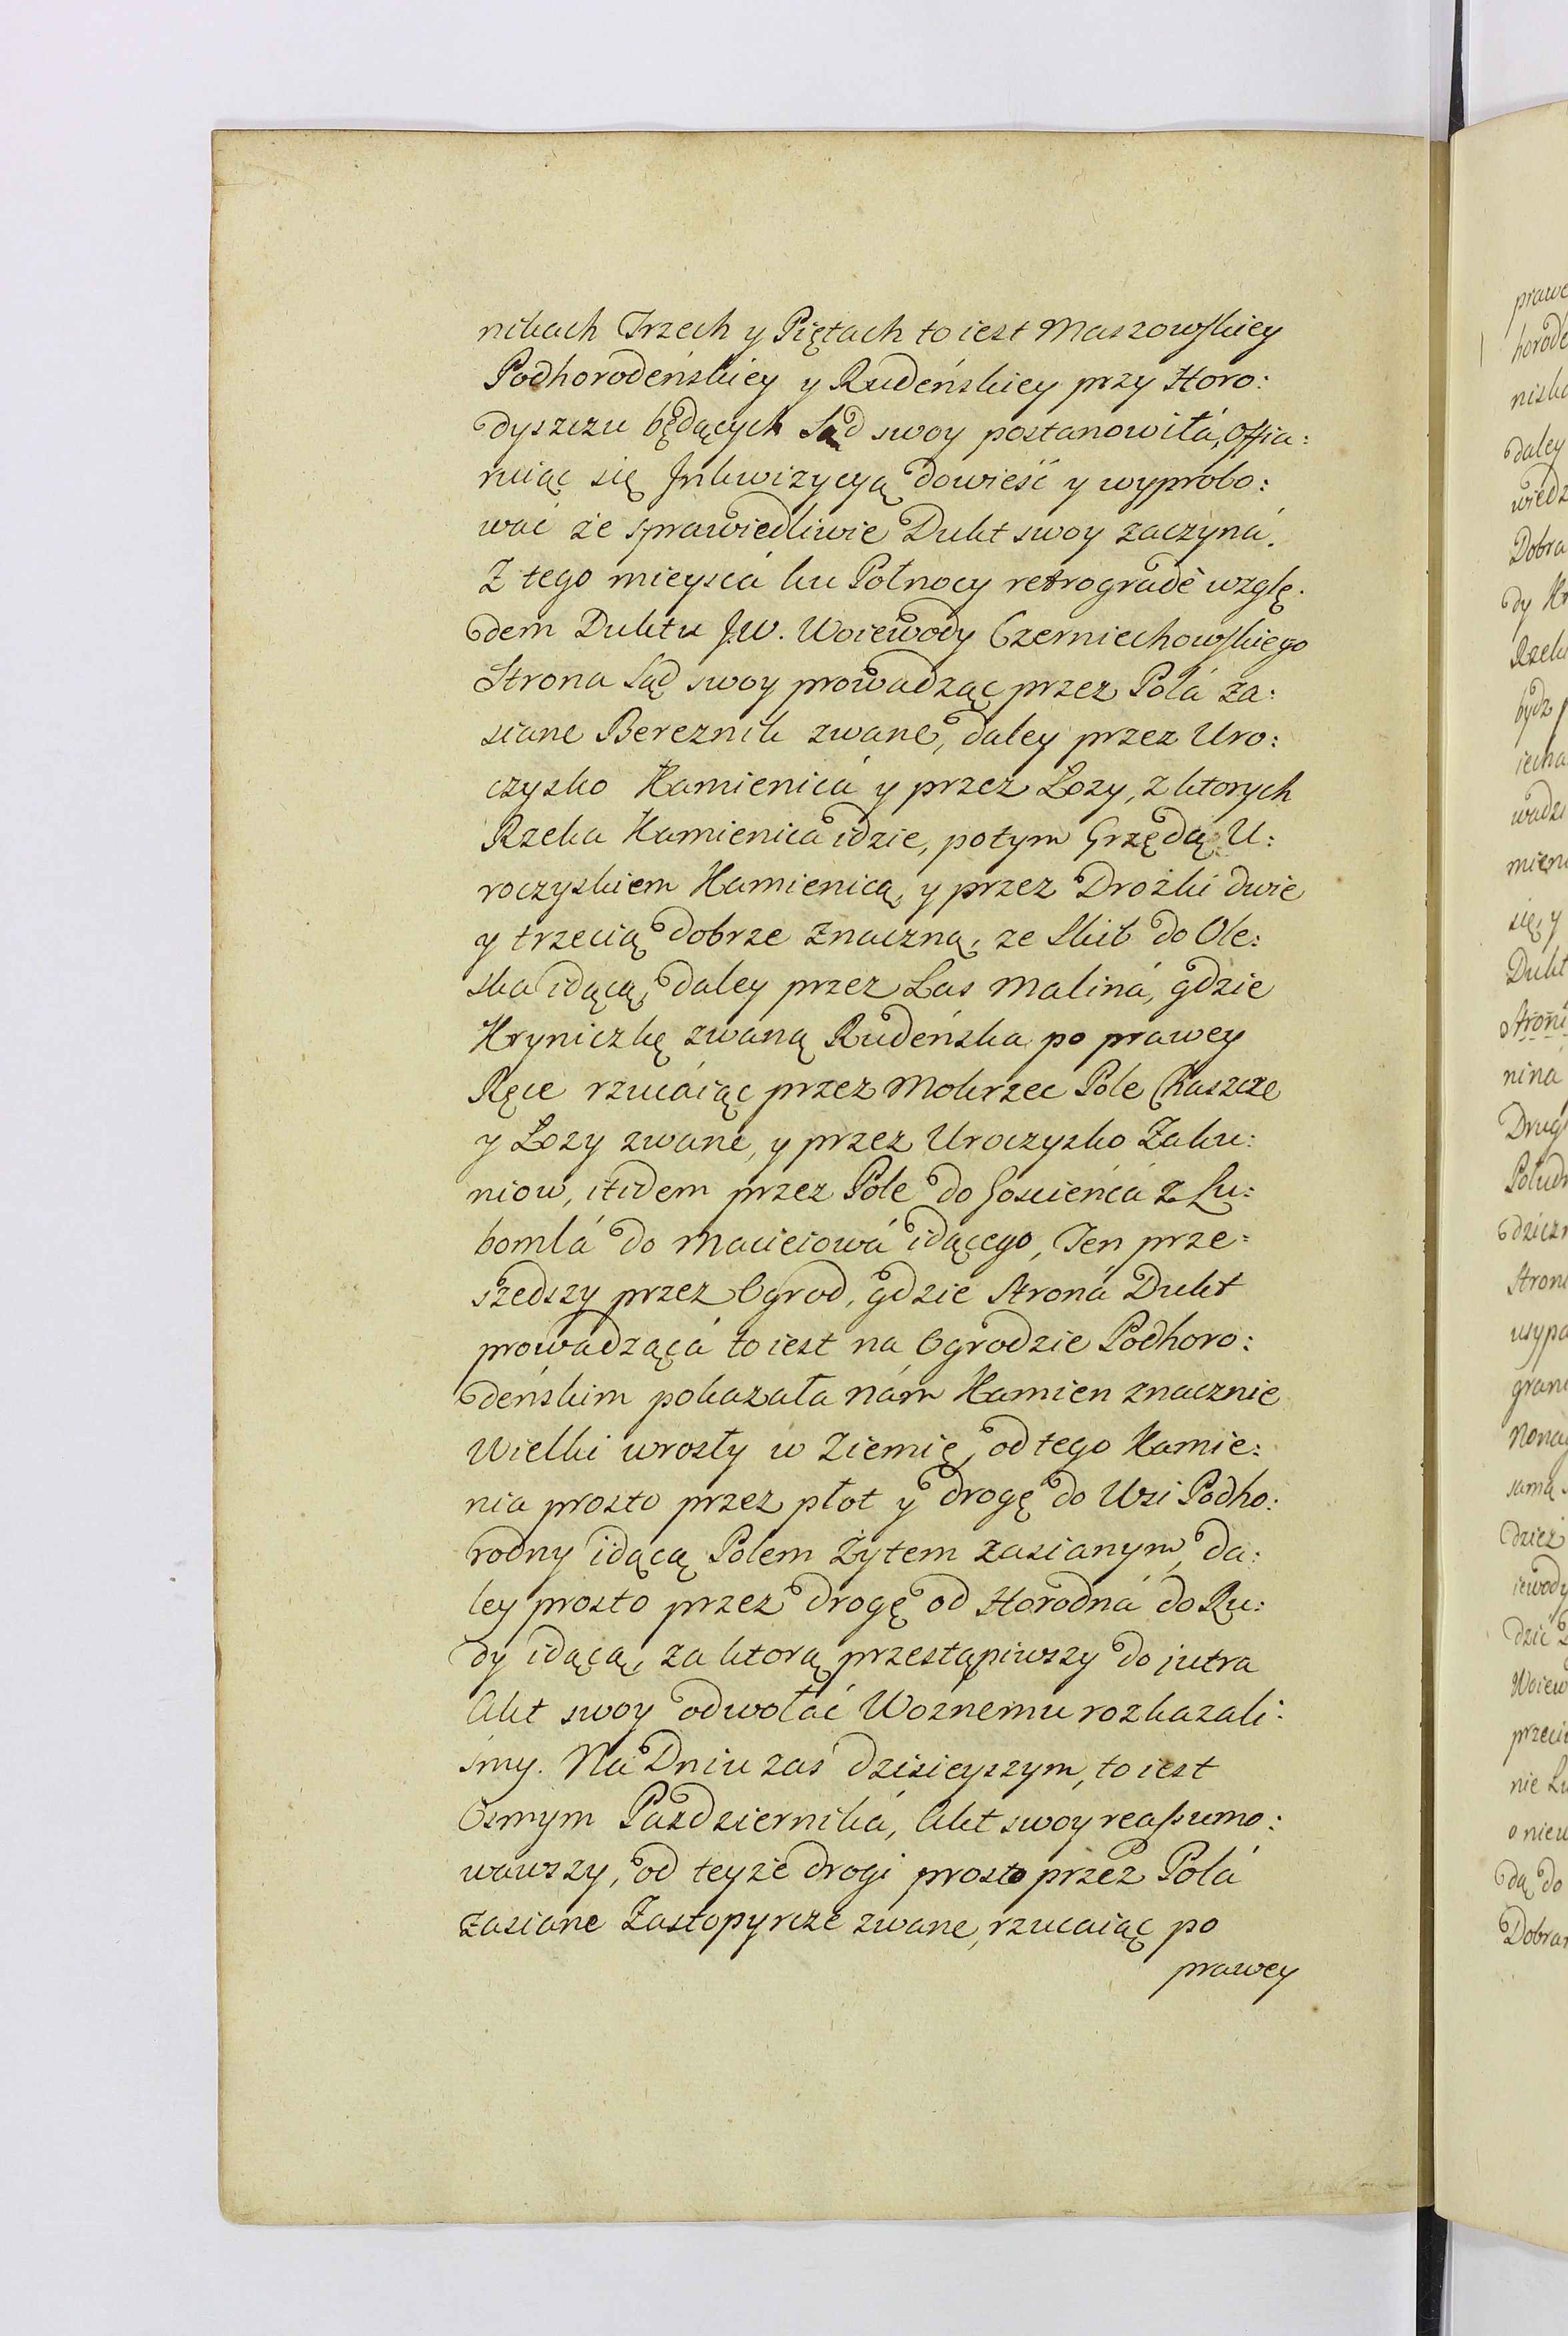 nikach Trzech y Piętach to iest Maszowskiey
Podhorodeńskiey y Rudeńskiey przy Horo:
dyszczu będących Sąd swoy postanowiła, Offia:
ruiąc się Inkwizycyą dowieść y wyprobo:
wać że sprawiedliwie Dukt swoy zaczyná.
Z tego mieyscá ku Połnocy retrogradè wzglę:
dem Duktu J.W. Woiewody Czerniechowskiego
Strona Sąd swoy prowadząc przez Polá za:
siane Bereznik zwane, daley przez Uro:
czysko Kamienicá y przez Łozy, z ktorych
Rzeka Kamienica idzie, potym Grzędą U:
roczyskiem Kamienicą, y przez Drożki dwie
y trzecią dobrze znaczną, ze Skib do Ole:
ska idącą, daley przez Las Maliná, gdzie
Kryniczkę zwaną Rudeńska po prawey
Ręce rzucáiąc przez Mokrzec Pole Chaszcze
y Łozy zwane, y przez Uroczysko Zaku:
niow, itidem przez Pole do Gościeńcá z Lu:
bomlá do Macieiowá idącego, Ten prze:
szedszy przez Ogrod, gdzie Stroná Dukt
prowadzącá to iest na Ogrodzie Podhoro:
deńskim pokazała nám Kamien znacznie
Wielki wrosły w Ziemię, od tego Kamie:
nia prosto przez płot y drogę do Wsi Podho:
rodny idącą Polem Żytem zasianym, da:
ley prosto przez drogę od Horodná do Ru:
dy idącą, za ktorą przestąpiwszy do jutra
Akt swoy odwołać Woznemu rozkazali:
śmy. Na Dniu zaś dzisieyszym, to iest
Osmym Pazdzierniká, Akt swoy reassumo:
wawszy, od teyże drogi prosto przez Polá
zasiane Zastopyrcze zwane, rzucaiąc po
prawey